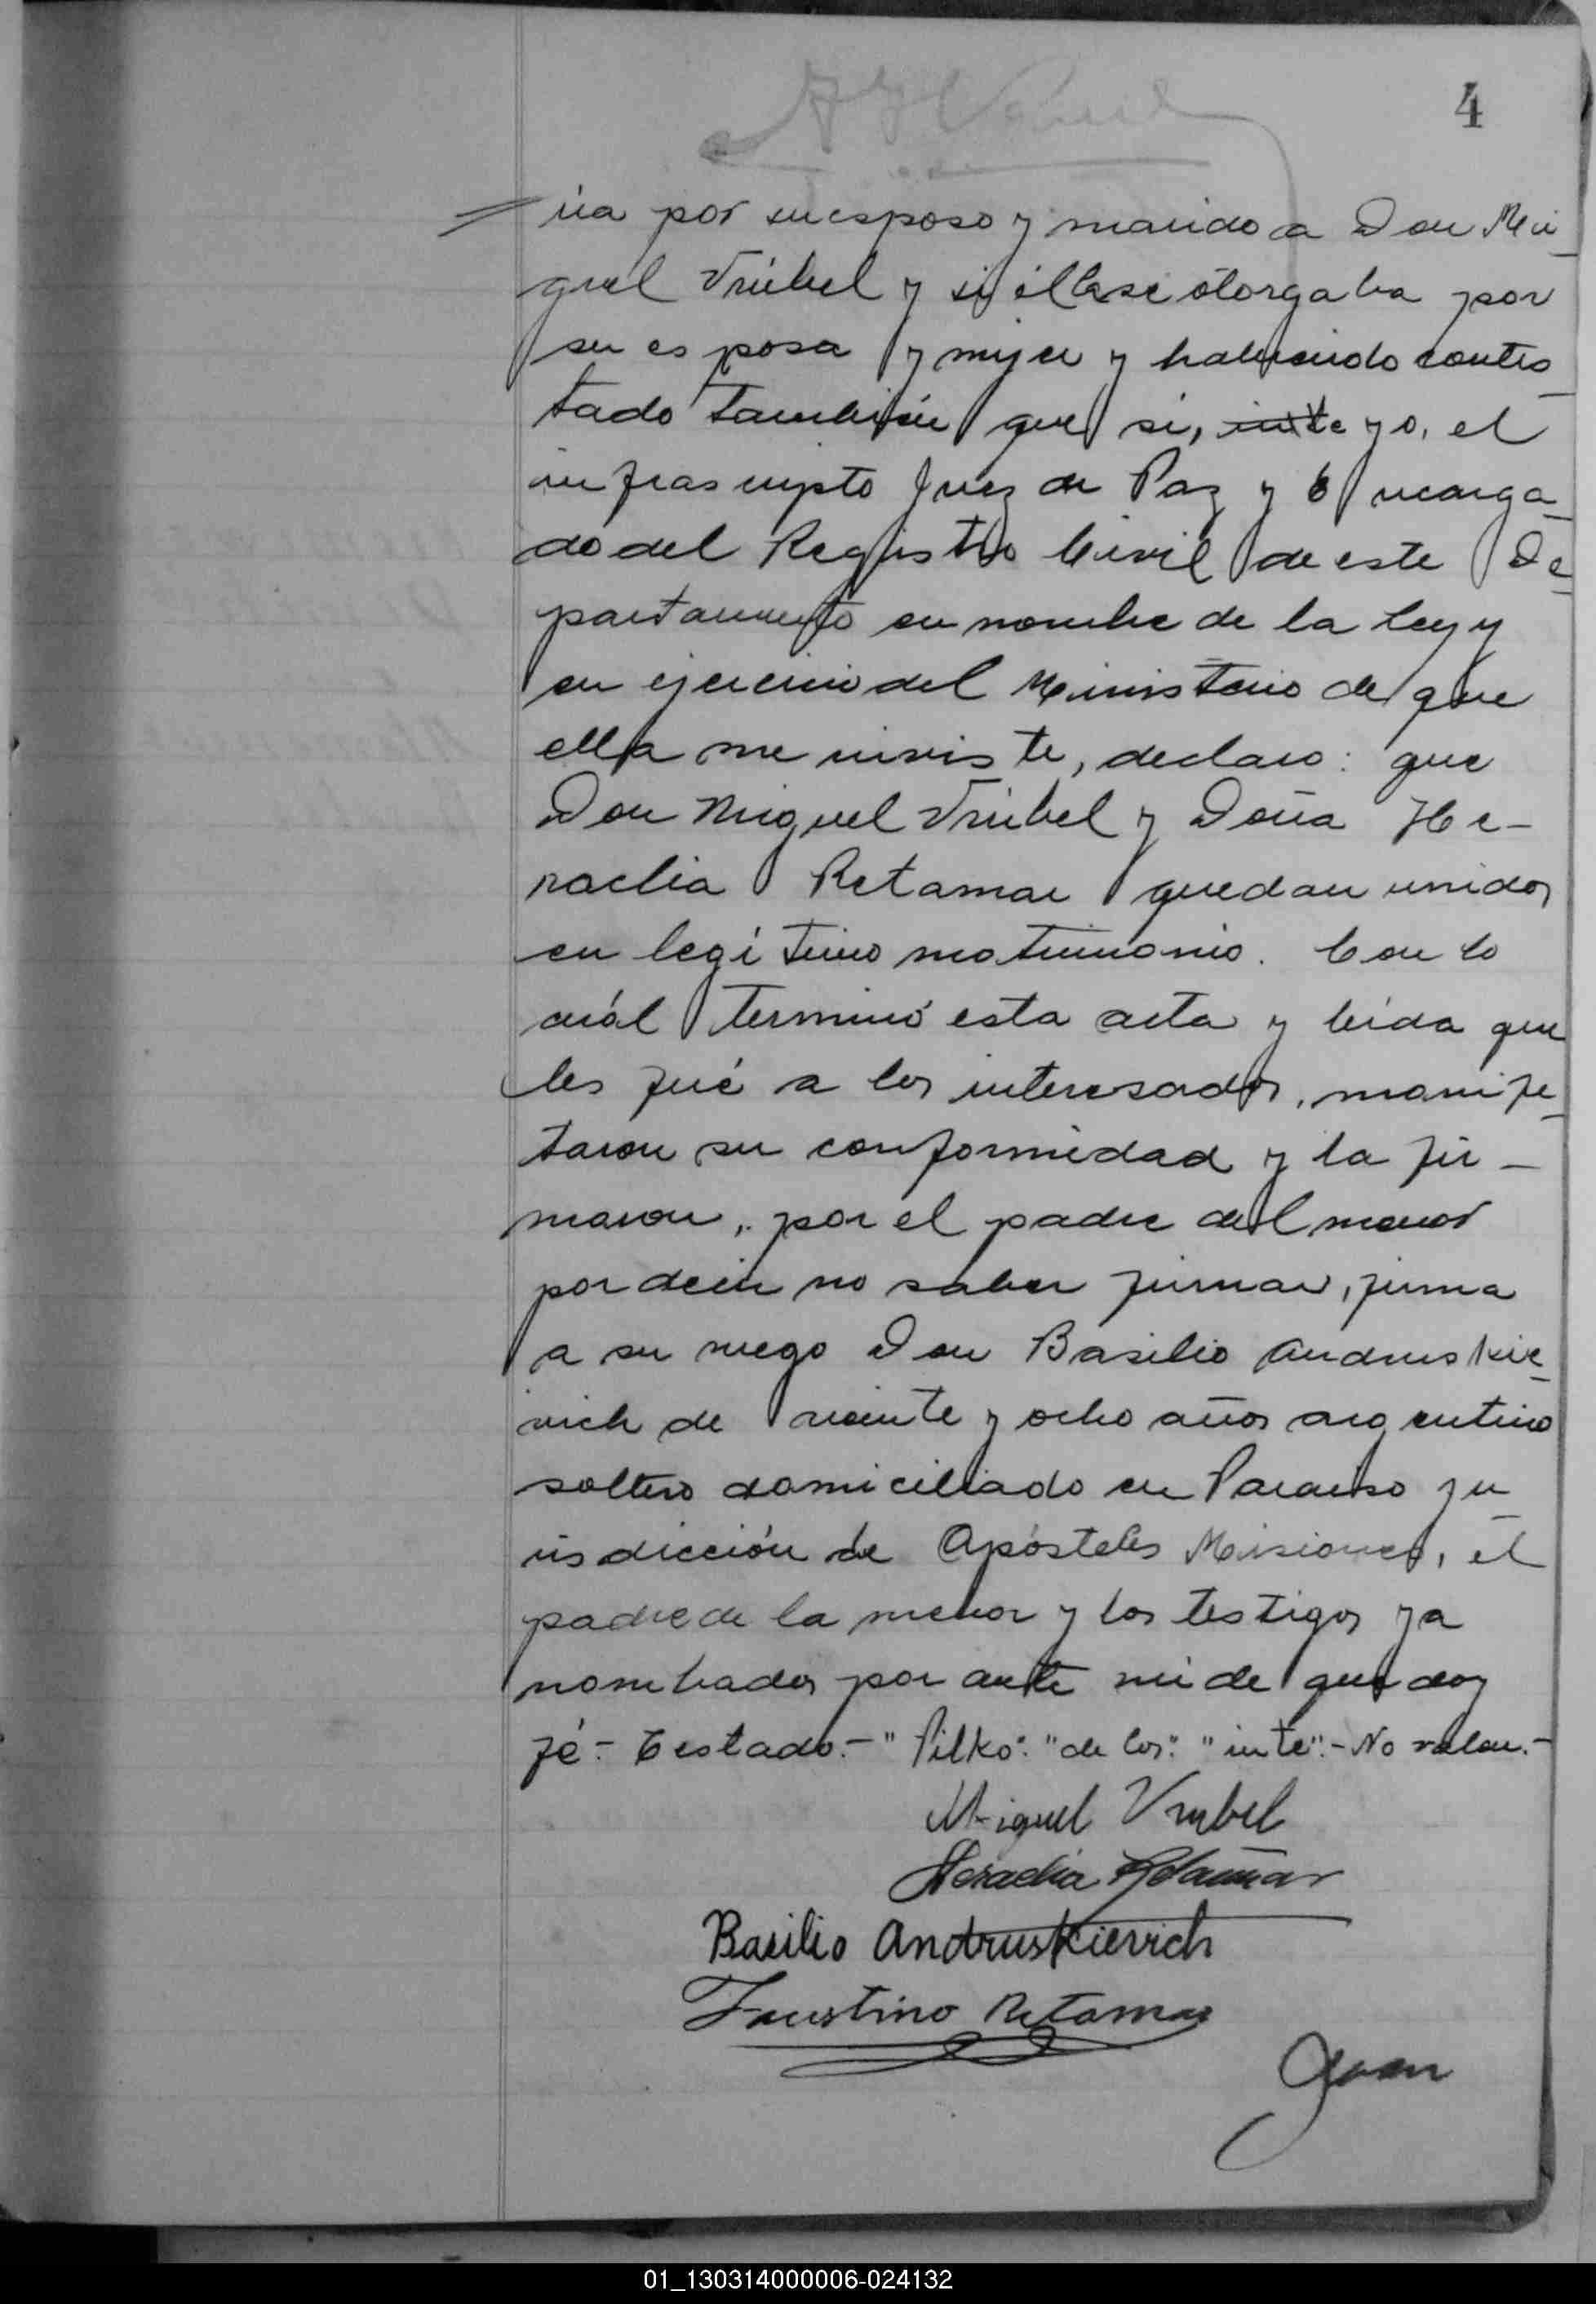 4
ría por su esposo y marido a Don Mi-
guel Vrúbel y si élla se otorgaba por
su esposa y mujer y habiendo contes-
tado también que si, inte yo, el
infrascripto Juez de Paz y Encarga-
do del Registro Civil de este De-
partamento en nombre de la Ley y
en ejercicio del Ministerio de que
ella me inviste, declaro: que
Don Miguel Vrúbel y Doña He-
raclia Retamar quedan unidos
en legítimo matrimonio. Con lo
cuál terminó esta acta y leída que
les fué a los interesados, manife-
taron su conformidad y la fir-
maron, por el padre del menor
por decir no saber firmar, firma
a su ruego Don Basilio Andruskie-
vich de veinte y ocho años argentino
soltero domiciliado en Paraiso ju-
risdicción de Apóstoles Misiones, el
padre de la menor y los testigos ya
nombrados por ante mi de que doy
fé.- Testado.- "Pilko". "de los". "inte".- No valen.-
Miguel Vrubel
Heraclia Retamar
Basilio Andruskievich
Faustino Retamar
Juan
01_130314000006-024132